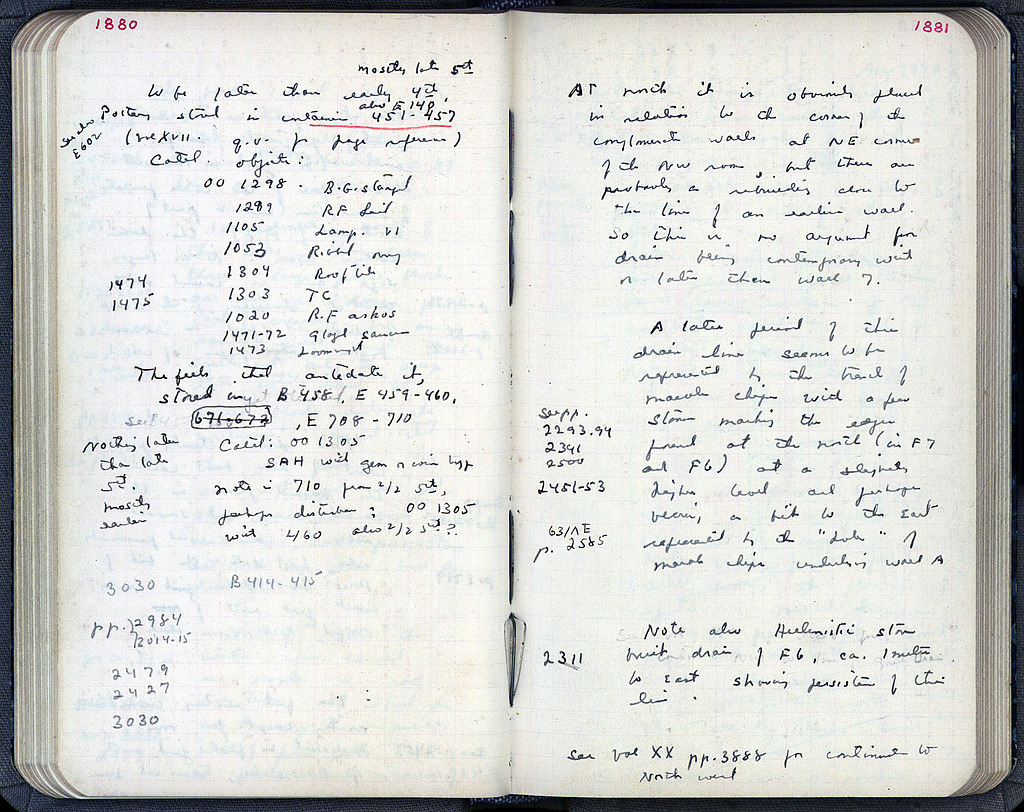 1880
mostly late 5th
to be later than early 4th,
also E 140,
see also
E602
Pottery stored in container 451-457
(vol XVII. q.v. for page references)
Catal. objects:
00 1298 -
1289 RF
1105 Lamp. VI
1053
1304 Roof tile
1474
1303 TC
1475
1020 R.F askos
1471-72 Glazed saucer
1473 Loomweight
The fills that antedate it,
stored in B 458, E 459-460,
see 671-673, E 708-710
Nothing later
than late
5th.
mostly
earlier
Catal: 00 1305
SAH with gem n coin type
note in 710 from 2/2 5th,
perhaps disturbed; 00 1305
with 460 also 2/2 5th??
3030 B 414-415
pp. 2984
2014-15
2479
2427
3030
1881
At north it is obviously placed
in relation to the corner of the
conglomerate walls at NE corner
of the NW room, but there are
probably a rebuilding close to
the line of an earlier wall.
So this is no argument for
drain being contemporary with
or later than wall 7.
A later period of this
drain line seems to be
represented by the trench of
marble chips with a few
see pp.
2293.94
2341
2500
stones marking the edges
found at the north (in F7
and F6) at a slightly
2451-53
higher level and perhaps
veering a bit to the East
63/ΛE
p. 2585
represented by the " " of
marble chips underlying wall A
Note also Hellenistic stone
2311
built drain of F6, ca. 1 meter
to East showing persistence of this
line.
see vol XX pp. 3888 for continuation to
North west